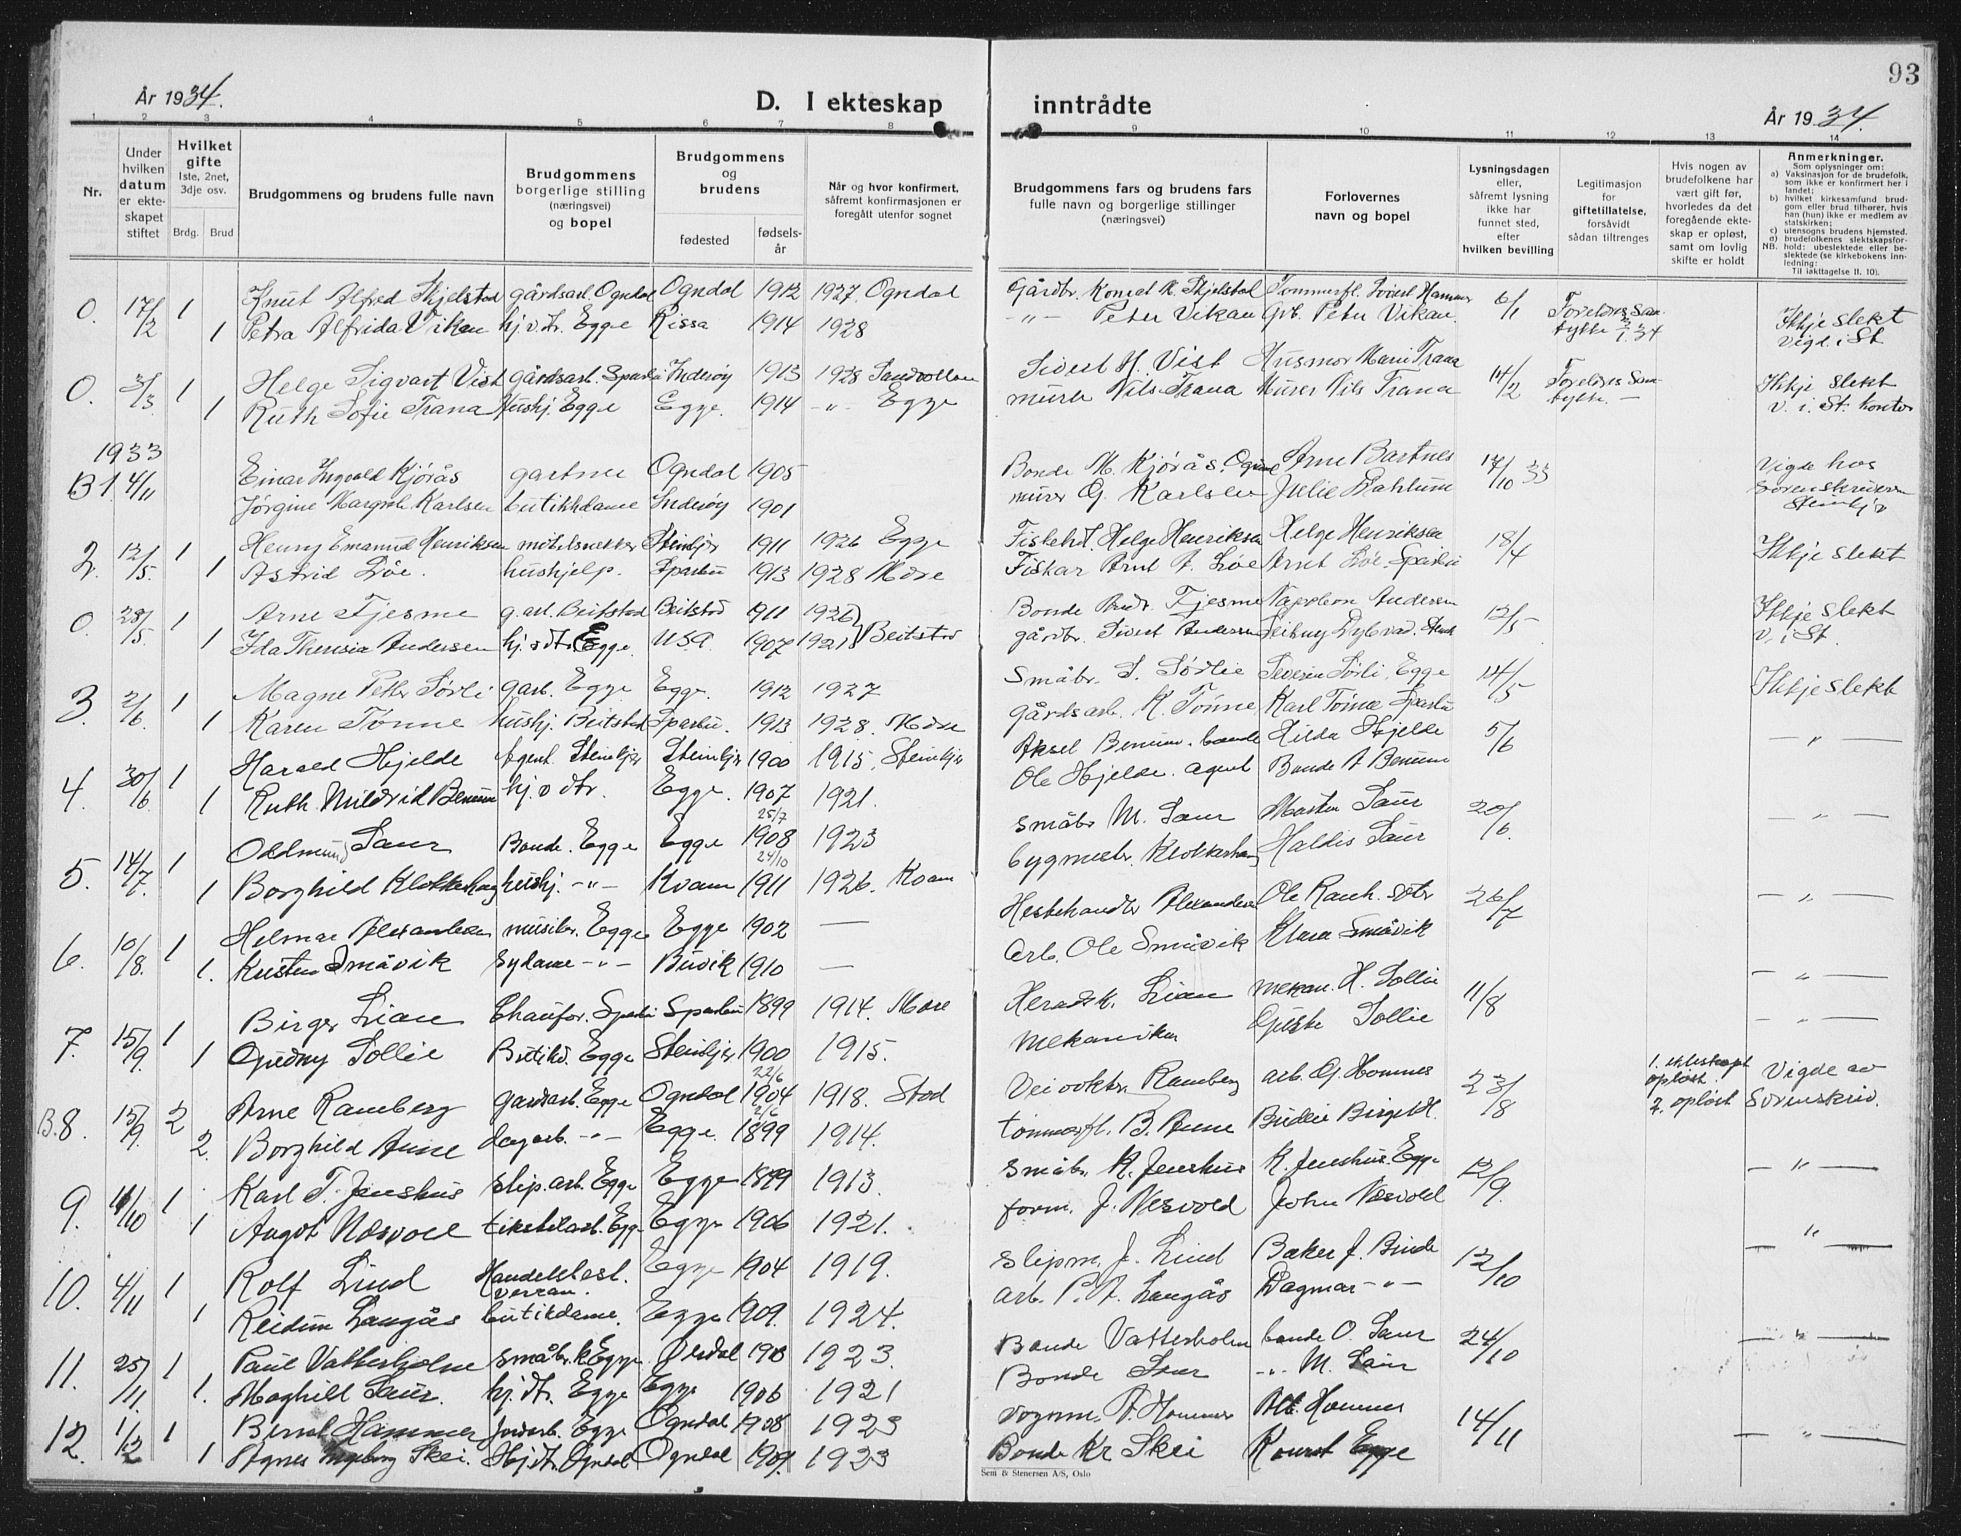 93
År 1934.
D. I ekteskap inntrådte
År 1934.
1 2 3 4 5 6 7 8 9 10 11 12 13 14
Nr.
Under hvilken datum er ekteskapet stiftet
Hvilket gifte
1ste, 2net, 3dje osv.
Brdg. Brud
Brudgommens og brudens fulle navn
Brudgommens borgerlige stilling (næringsvei) og bopel
Brudgommens og brudens
fødested
fødselsår
Når og hvor konfirmert, såfremt konfirmasjonen er foregått utenfor sognet
Brudgommens fars og brudens fars fulle navn og borgerlige stillinger (næringsvei)
Forlovernes navn og bopel
Lysningsdagen eller, såfremt lysning ikke har funnet sted, efter hvilken bevilling
Legitimasjon for giftetillatelse, forsåvidt sådan tiltrenges
Hvis nogen av brudefolkene har vært gift før, hvorledes da det foregående ekteskap er opløst, samt om lovlig skifte er holdt
Anmerkninger.
Som oplysninger om:
a) Vaksinasjon for de brudefolk, som ikke er konfirmert her i landet;
b) hvilket kirkesamfund brudgom eller brud tilhører, hvis han (hun) ikke er medlem av statskirken;
c) utensogns brudens hjemsted.
d) brudefolkenes slektskapsforhold: ubeslektede eller beslektede (se kirkebokens innledning:
NB. Til iakttagelse II. 10).
0. 17/2 1 Knut Alfred Skjelstad gårdsarb. Ogndal Ogndal 1912 1927. Ogndal Gårdbr. Konrad K. Skjelstad Tømmerfl. Sivert Hammer 6/1 Foreldres sam- Ikkje slekt
1 Petra Alfrida Viken hj.v.d. Egge Rissa 1914 1928 -"- Peter Vikan Grb. Peter Vikan. tykke vigd i St
0. 3/3 1 Helge Sigvart Vist gårdsarb. Sparbu Inderøy 1913 1928 Sandvollan Sivert H. Vist Husmor Marie Trana 14/2 Foreldres sam- Ikkje slekt
1 Ruth Sofie Trana Hushj. Egge Egge. 1914 -"- Egge murer Nils Trana Murer Nils Trana tykke. v. i. St. kontor
1933
B 1. 4/11 Einar Ingvald Kjørås gartner Ogndal 1905 Bonde M. Kjørås. Arne Bartnes 17/10 33 Vigde hos
Jørgine Margrete Karlsen butikkdame Inderøy 1901 murer O. Karlsen Julie Dahlum sorenskriveren Steinkjer
2. 12/5. 1 Henry Emanuel Henriksen møbelsnekker Steinkjer 1911 1926 Egge Fiskehl. Helge Henriksen Helge Henriksen 18/4 Ikkje slekt
1 Astrid Løe. hushjelp. Sparbu 1913 1928 Mære Fiskar Arnt A. Løe Arnt Løe. Sparbu
0 28/5. 1 Arne Fjesme g.arb. Beitstad Beitstad 1911 1926 Bonde Fjesme Napoleon Andersen 12/5 Ikkje slekt
1 Ida Theresia Andersen hj.v.dt. Egge. USA 1907 1921 Beitstad gårdbr. Sivert Andersen v. i St.
3. 2/6 1 Magne Peter Sørli garb. Egge Egge. 1912 1927 Småbr. S. Sørlie Severin Sørli, Egge 14/5 Ikkje slekt
1 Karen Tønne hushj. Beitstad Sparbu. 1913 1928. Mære gårdsarb. K. Tønne Karl Tønne Sparbu
4. 30/6 1 Harald Hjelde Agent. Steinkjer Steinkjer 1900 1915, Steinkjer Aksel Benum. bonde Hilda Hjelde 5/6 — " —
1 Ruth Mildrid Benum hj. v dtr. Egge. 1907 1921. Ole Hjelde. agent Bonde A Benum
5. 14/7. 1 Oddmund Saur Bonde. Egge Egge 25/7 1908 1923 småbr M. Saur Marten Saur 20/6. — " —
1 Borghild Klokkerhaug hushj. -"- Kvam 24/10 1911 1926. Kvam bygmestr. Klokkerhaug Haldis Saur
6. 10/8. 1 Helmar Alexandersen musiker. Egge Egge 1902 — Hestehandler Alexandersen Ole Ranh. 26/7 — " —
1. Kristen Småvik sydame -"- Buvik 1910 — Arb. Ole Småvik Klara Småvik
7. 15/9. 1 Birger Lian Chaufør. Sparbu Sparbu 1899 1914. Mære Heradsk. Lian mekan. H. Sollie 11/8 — " —
1 Gudny Sollie Butikd. Egge Steinkjer 1900 1915. Mekaniker Sollie — " —
B.8. 15/9. 2 Arne Ramberg gardsarb. Egge Ogndal 22/6 1904 1918. Stod Veivokter Ramberg arb. O. Hommes 23/8 1. ekteskapet opløst. Vigde av
2. Borghild Aune dagarb. -"- Egge. 2/6 1899 1914. tømmerfl. B. Aune 2. opløst Sorenskriv.
9. 11/10 1 Karl T. Jenshus slip.arb. Egge Egge 1899 1913. småbr. K. Jenshus K. Jenshus. Egge 12/9. — " —
1 Augot Næsvold tekstilarb. Egge Egge 1906 1921. form. J. Nesvold John Næsvold
10. 4/11 1 Rolf Lind Handelsbest. Verran. Egge 1904 1919. slipm. J. Lind Baker J. Binde 12/10 — " —
1 Reidun Langås butikdame. Egge 1909. 1924. arb. P. A. Langås Dagmar -"-
11. 25/11. 1 Paul Vatterholm småbr. Egge. 1923. Bonde Vatterholm bonde O. Saur 24/10 — " —
1. Maghild Saur. hj.dt. Egge Egge 1906 1921 Bonde Saur -"- M. Saur
12. 1/12 1 Bernt Hammer Jordarb. Egge Ogndal 1908 1923 Vognm. A. Hommer Alb. Hommer 14/11 — " —
1 Agnes Ingeborg Skei. Hj.dt. Ogndal Ogndal 1909. 1923 Bonde Kr Skei Egge
Sem & Stenersen A/S, Oslo